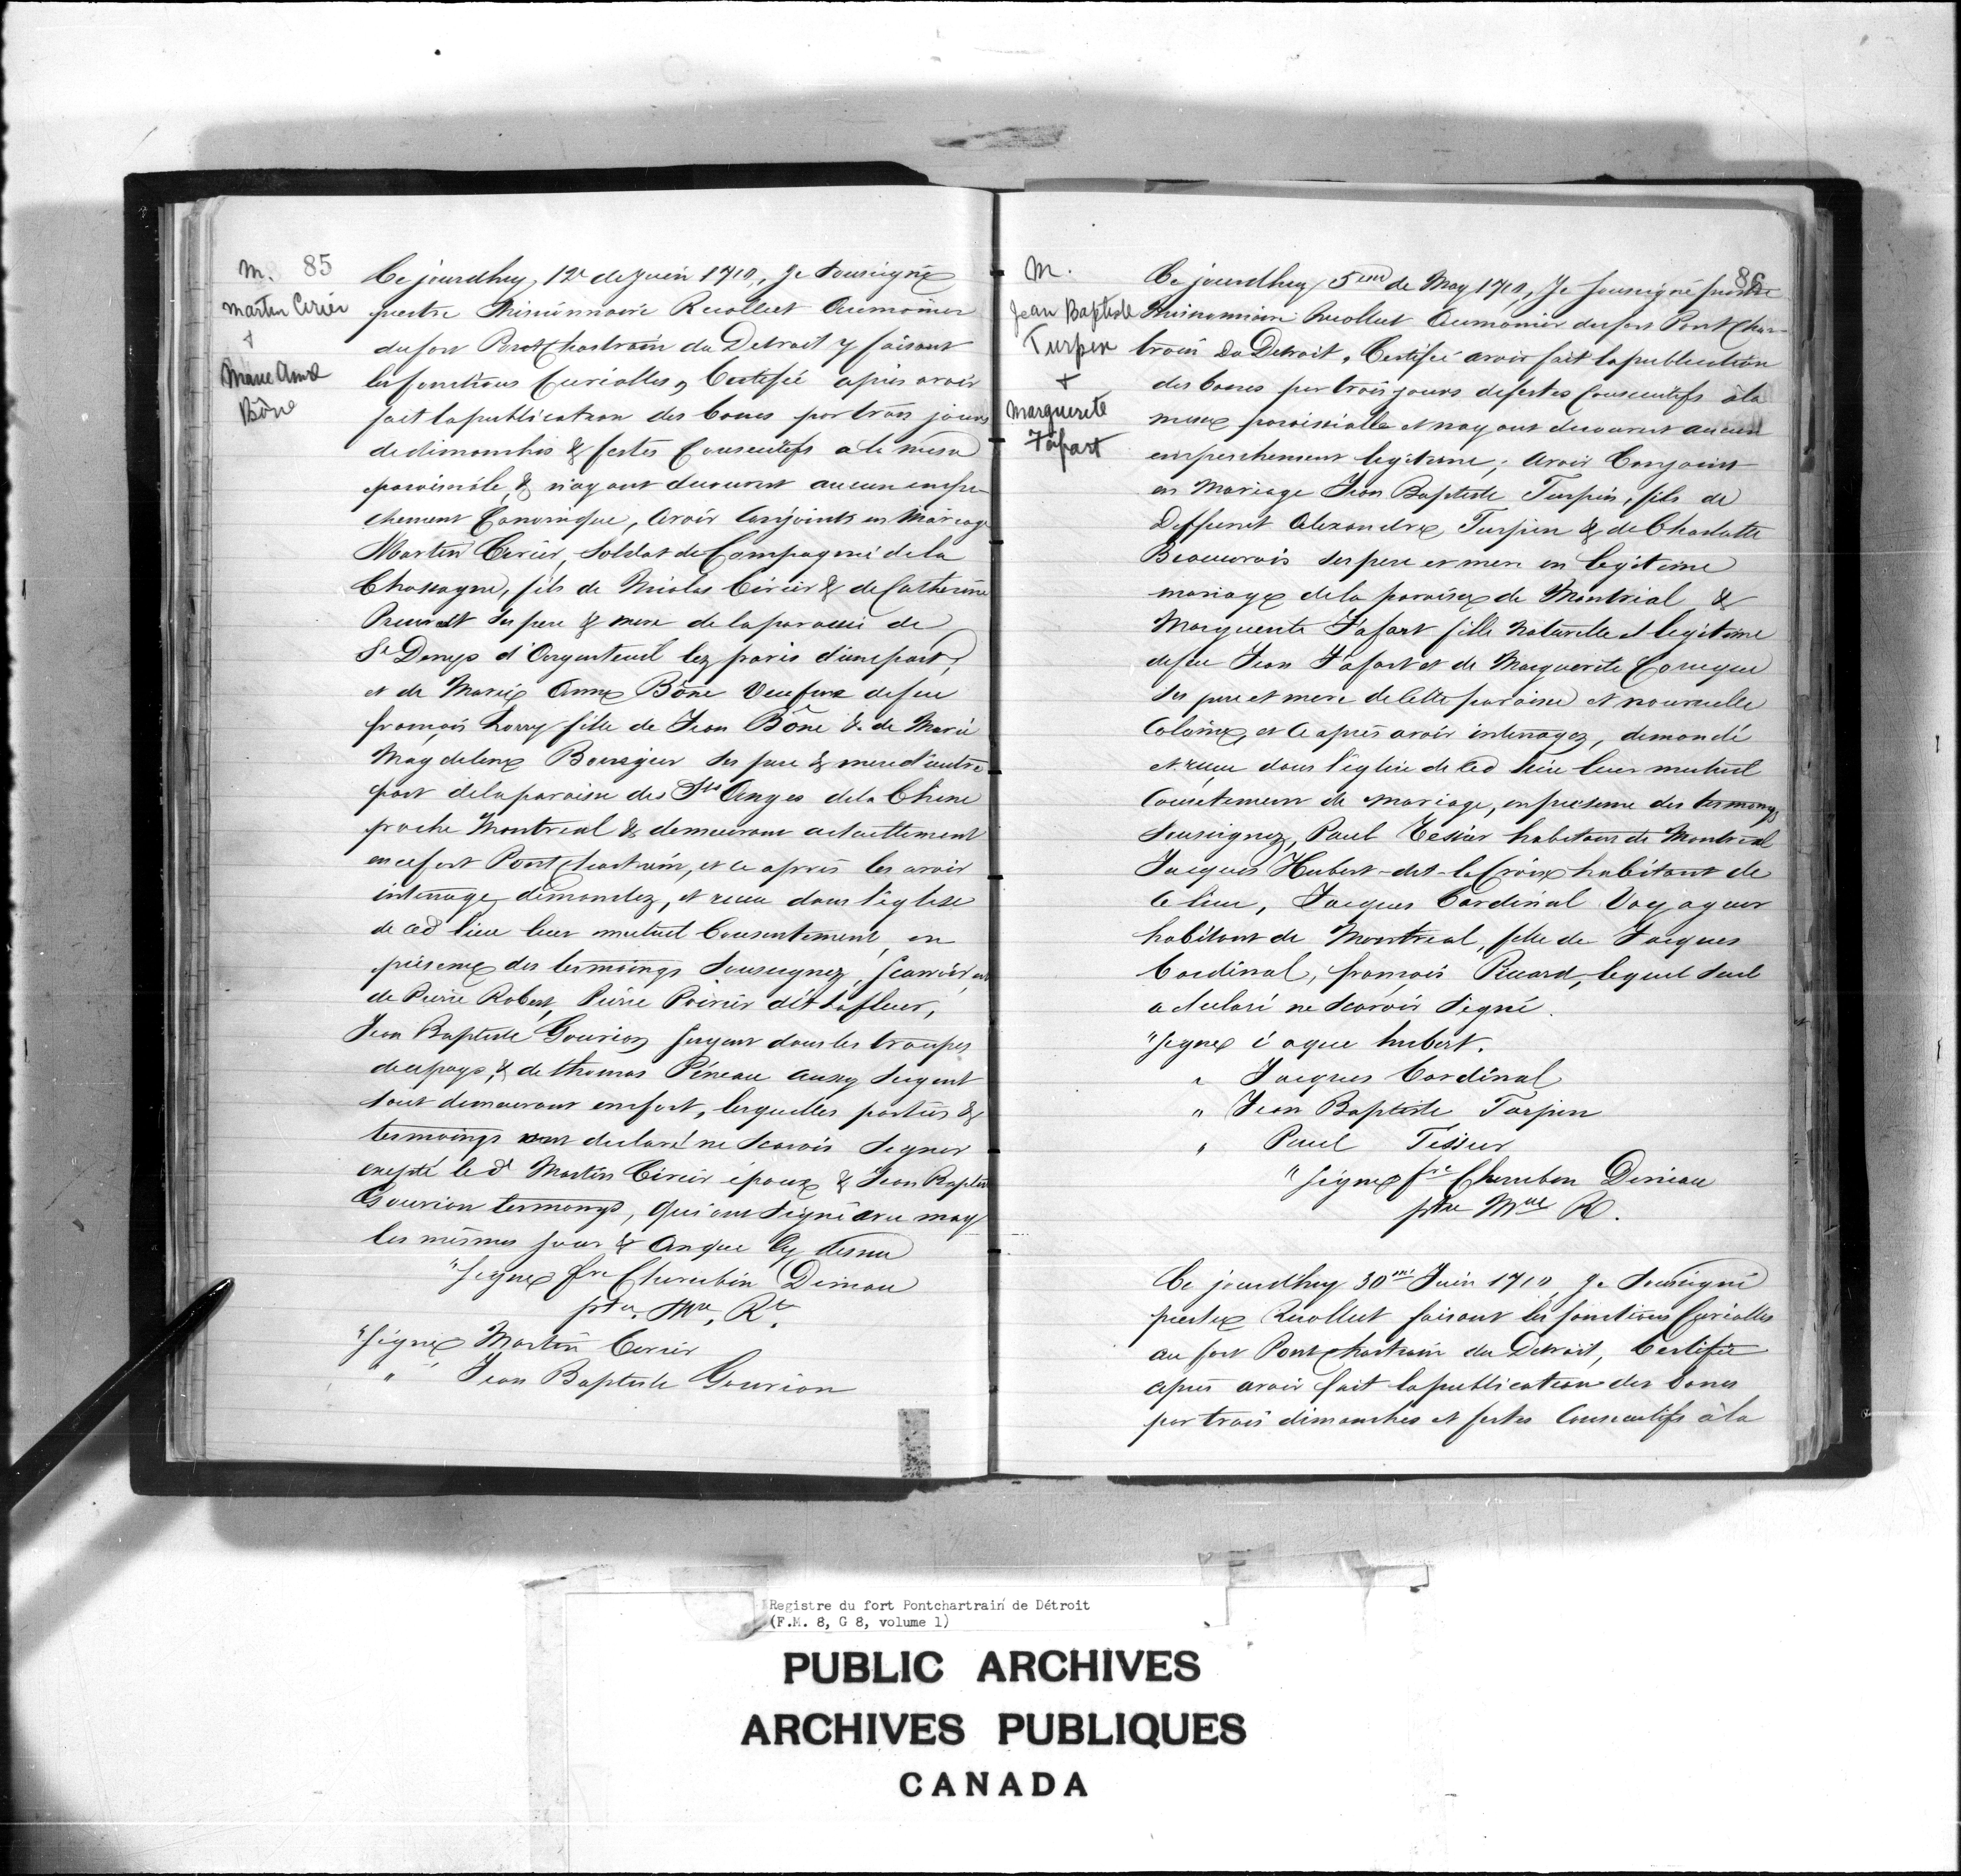 m. 85
Martin Cirier
+
Marie Anne
Bône
Ce jourdhuy, 12e de Juin 1710, Je soussigné
prestre Missionnaire Recollect Aumonier
du fort Pontchartrain du Detroit y faisant
les fonctions Curialles, Certifié apres avoir
fait la publication des bancs par trois jours
de dimanches & festes Consecutifs a la messe
paroissiale, & n'ayant decouvert aucun empe-
chement Canonique, avoir Conjoints en Mariage
Martin Cirier, Soldat de Compagnie de la
Chassagne, fils de Nicolas Cirier & de Catherine
Prevost ses pere & mere de la paroisse de
St Denys d'Argenteuil lez paris d'une part,
et de Marie Anne Bône Veufve de feu
francois Lorry fille de Jean Bône & de Marie
Magdelene Bourgier ses pere & mere d'autre
part de la paroisse des Sts Anges de la Chine
proche Montreal & demeurant actuellement
en ce fort Pontchartrain, et ce apres les avoir
interroge demandez, et recu dans l'eglise
de ced lieu leur mutuel Consentement, en
presence des tesmoings Soussignez, scavoir
de Pierre Robert, Pierre Poirier dit Lafleur,
Jean Baptiste Gourion sergent dans les troupes
de ce pays, & de thomas Péneau aussy sergent
tout demeurant en ce fort, lesquelles parties &
tesmoings ont declaré ne scavoir Signer
excepté led Martin Cirier époux & Jean Baptiste
Gourion tesmoings, qui ont Signé avec moy
les mêmes jour & An que Cy dessus
"Signé fre Cherubin Deniau
ptre. Mre, Rt.
"Signé Martin Cirier
" " Jean Baptiste Gourion
86
m.
Jean Baptiste
Turpin
+
Marguerite
Fafart
Ce jourdhuy 5me de May 1710, Je soussigné prestre
Missionnaire Recollect Aumonier du fort Pont Char-
train du Detroit, Certifié avoir fait la publication
des bancs par trois jours de festes Consecutifs à la
messe paroissialle et n'ayant decouvert aucun
empeschement legitime; avoir Conjoint
en Mariage Jean Baptiste Turpin, fils de
Deffunct Alexandre Turpin & de Charlotte
Beauvais ses pere et mere en legitime
mariage de la paroisse de Montrial &
Marguerite Fafart fille Naturelle et legitime
de feu Jean Fafart et de Marguerite Couque
ses pere et mere de cette paroisse et nouvelle
Colonie, et ce après avoir interrogez, demandé
et reçu dans l'eglise de ced lieu leur mutuel
Consetement de mariage, en presence des tesmoings
Soussignez, Paul Tessier habitant de Montreal
Jacques Hubert-dit-la Croix habitant de
ce lieu, Jacques Cardinal Voyageur
habitant de Montreal, fils de Jacques
Cardinal, françois Picard, lequel seul
a declaré ne scavoir Signé.
"Signé i aque hubert.
" Jacques Cardinal
" Jean Baptiste Turpin
" Paul Tissier
"Signé fre Cherubin Deniau
ptre Mre R.
Ce jourdhuy 30me Juin 1710 Je Soussigné
prestre Recollect faisant les fonctions Curialles
au fort Pontchartrain du Detroit, Certifié
apres avoir fait la publication des bancs
par trois dimanches et festes Consecutifs à la
Registre du fort Pontchartrain de Détroit
(F.M. 8, G 8, volume 1)
PUBLIC ARCHIVES
ARCHIVES PUBLIQUES
CANADA